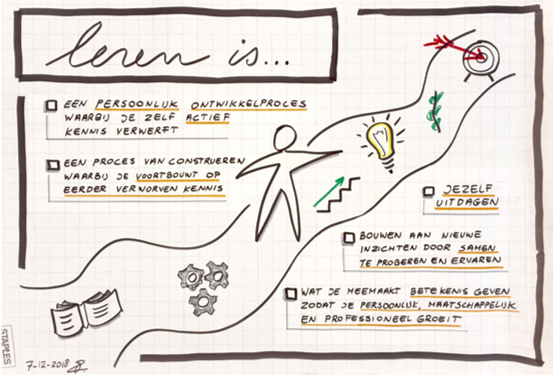 leren is...
EEN PERSOONLIJK ONTWIKKELPROCES
WAARBIJ JE ZELF ACTIEF
KENNIS VERWERFT
EEN PROCES VAN CONSTRUEREN
WAARBIJ JE VOORTBOUWT OP
EERDER VERWORVEN KENNIS
JEZELF
UITDAGEN
BOUWEN AAN NIEUWE
INZICHTEN DOOR SAMEN
TE PROBEREN EN ERVAREN
WAT JE MEEMAAKT BETEKENIS GEVEN
ZODAT JE PERSOONLIJK, MAATSCHAPPELIJK
EN PROFESSIONEEL GROEIT
STAPLES
7-12-2018